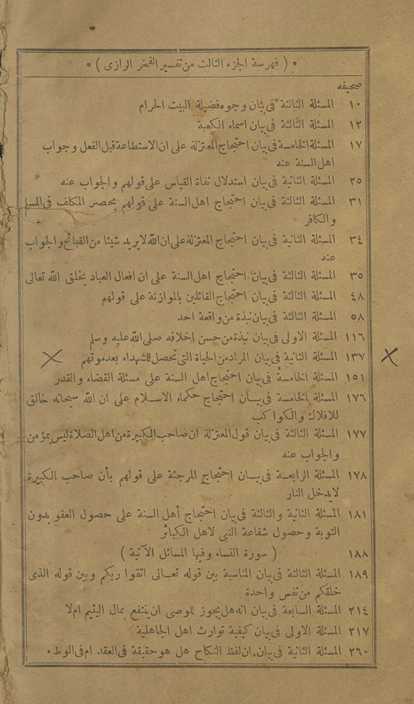 * ( فهرسة الجزء الثالث من تفسير الفخر الرازى ) *
صحيفه
١٠ المسئلة الثانية فى بيان وجوه فضيلة البيت الحرام
١٢ المسئلة الثالثة فى بيان اسماء الكعبة
١٧ المسئلة الخامسة فى بيان احتجاج المعتزلة على ان الاستطاعة قبل الفعل وجواب
اهل السنة عنه
٢٥ المسئلة الثانية فى بيان استدلال نفاة القياس على قولهم والجواب عنه
٣١ المسئلة الثالثة فى بيان احتجاج اهل السنة على قولهم يحصر المكلف فى المسلم
والكافر
٣٤ المسئلة الثانية فى بيان احتجاج المعتزلة على ان الله لا يريد شيئا من القبائح والجواب
عنه
٣٥ المسئلة الثالثة فى بيان احتجاج اهل السنة على ان افعال العباد بخلق الله تعالى
٤٨ المسئلة الثالثة فى بيان احتجاج القائلين بالموازنة على قولهم
٥٨ المسئلة الثالثة فى بيان نبذة من واقعة احد
١١٦ المسئلة الاولى فى بيان نبذة من حسن اخلاقه صلى الله عليه وسلم
١٣٧ المسئلة الثانية فى بيان المراد من الحياة التى تحصل للشهداء بعد موتهم
١٥١ المسئلة الخامسة فى بيان احتجاج اهل السنة على مسئلة القضاء والقدر
١٧٦ المسئلة الخامسة فى بيان احتجاج حكماء الاسلام على ان الله سبحانه خالق
للافلاك والكواكب
١٧٧ المسئلة الثالثة فى بيان قول المعتزلة ان صاحب الكبيرة من اهل الصلاة ليس بمؤمن
والجواب عنه
١٧٨ المسئلة الرابعة فى بيان احتجاج المرجئة على قولهم بأن صاحب الكبيرة
لا يدخل النار
١٨١ المسئلة الثانية والثالثة فى بيان احتجاج أهل السنة على حصول العفو بدون
التوبة وحصول شفاعة النبى لاهل الكبائر
١٨٨ ( سورة النساء وفيها المسائل الآتية )
١٨٩ المسئلة الثالثة فى بيان المناسبة بين قوله تعالى اتقوا ربكم وبين قوله الذى
خلقكم من نفس واحدة
٢١٤ المسئلة السابعة فى بيان انه هل يجوز للوصى ان ينتفع بمال اليتيم ام لا
٢١٧ المسئلة الاولى فى بيان كيفية توارث اهل الجاهلية
٢٦٠ المسئلة الثانية فى بيان ان لفظ النكاح هل هو حقيقة فى العقد ام فى الوطء